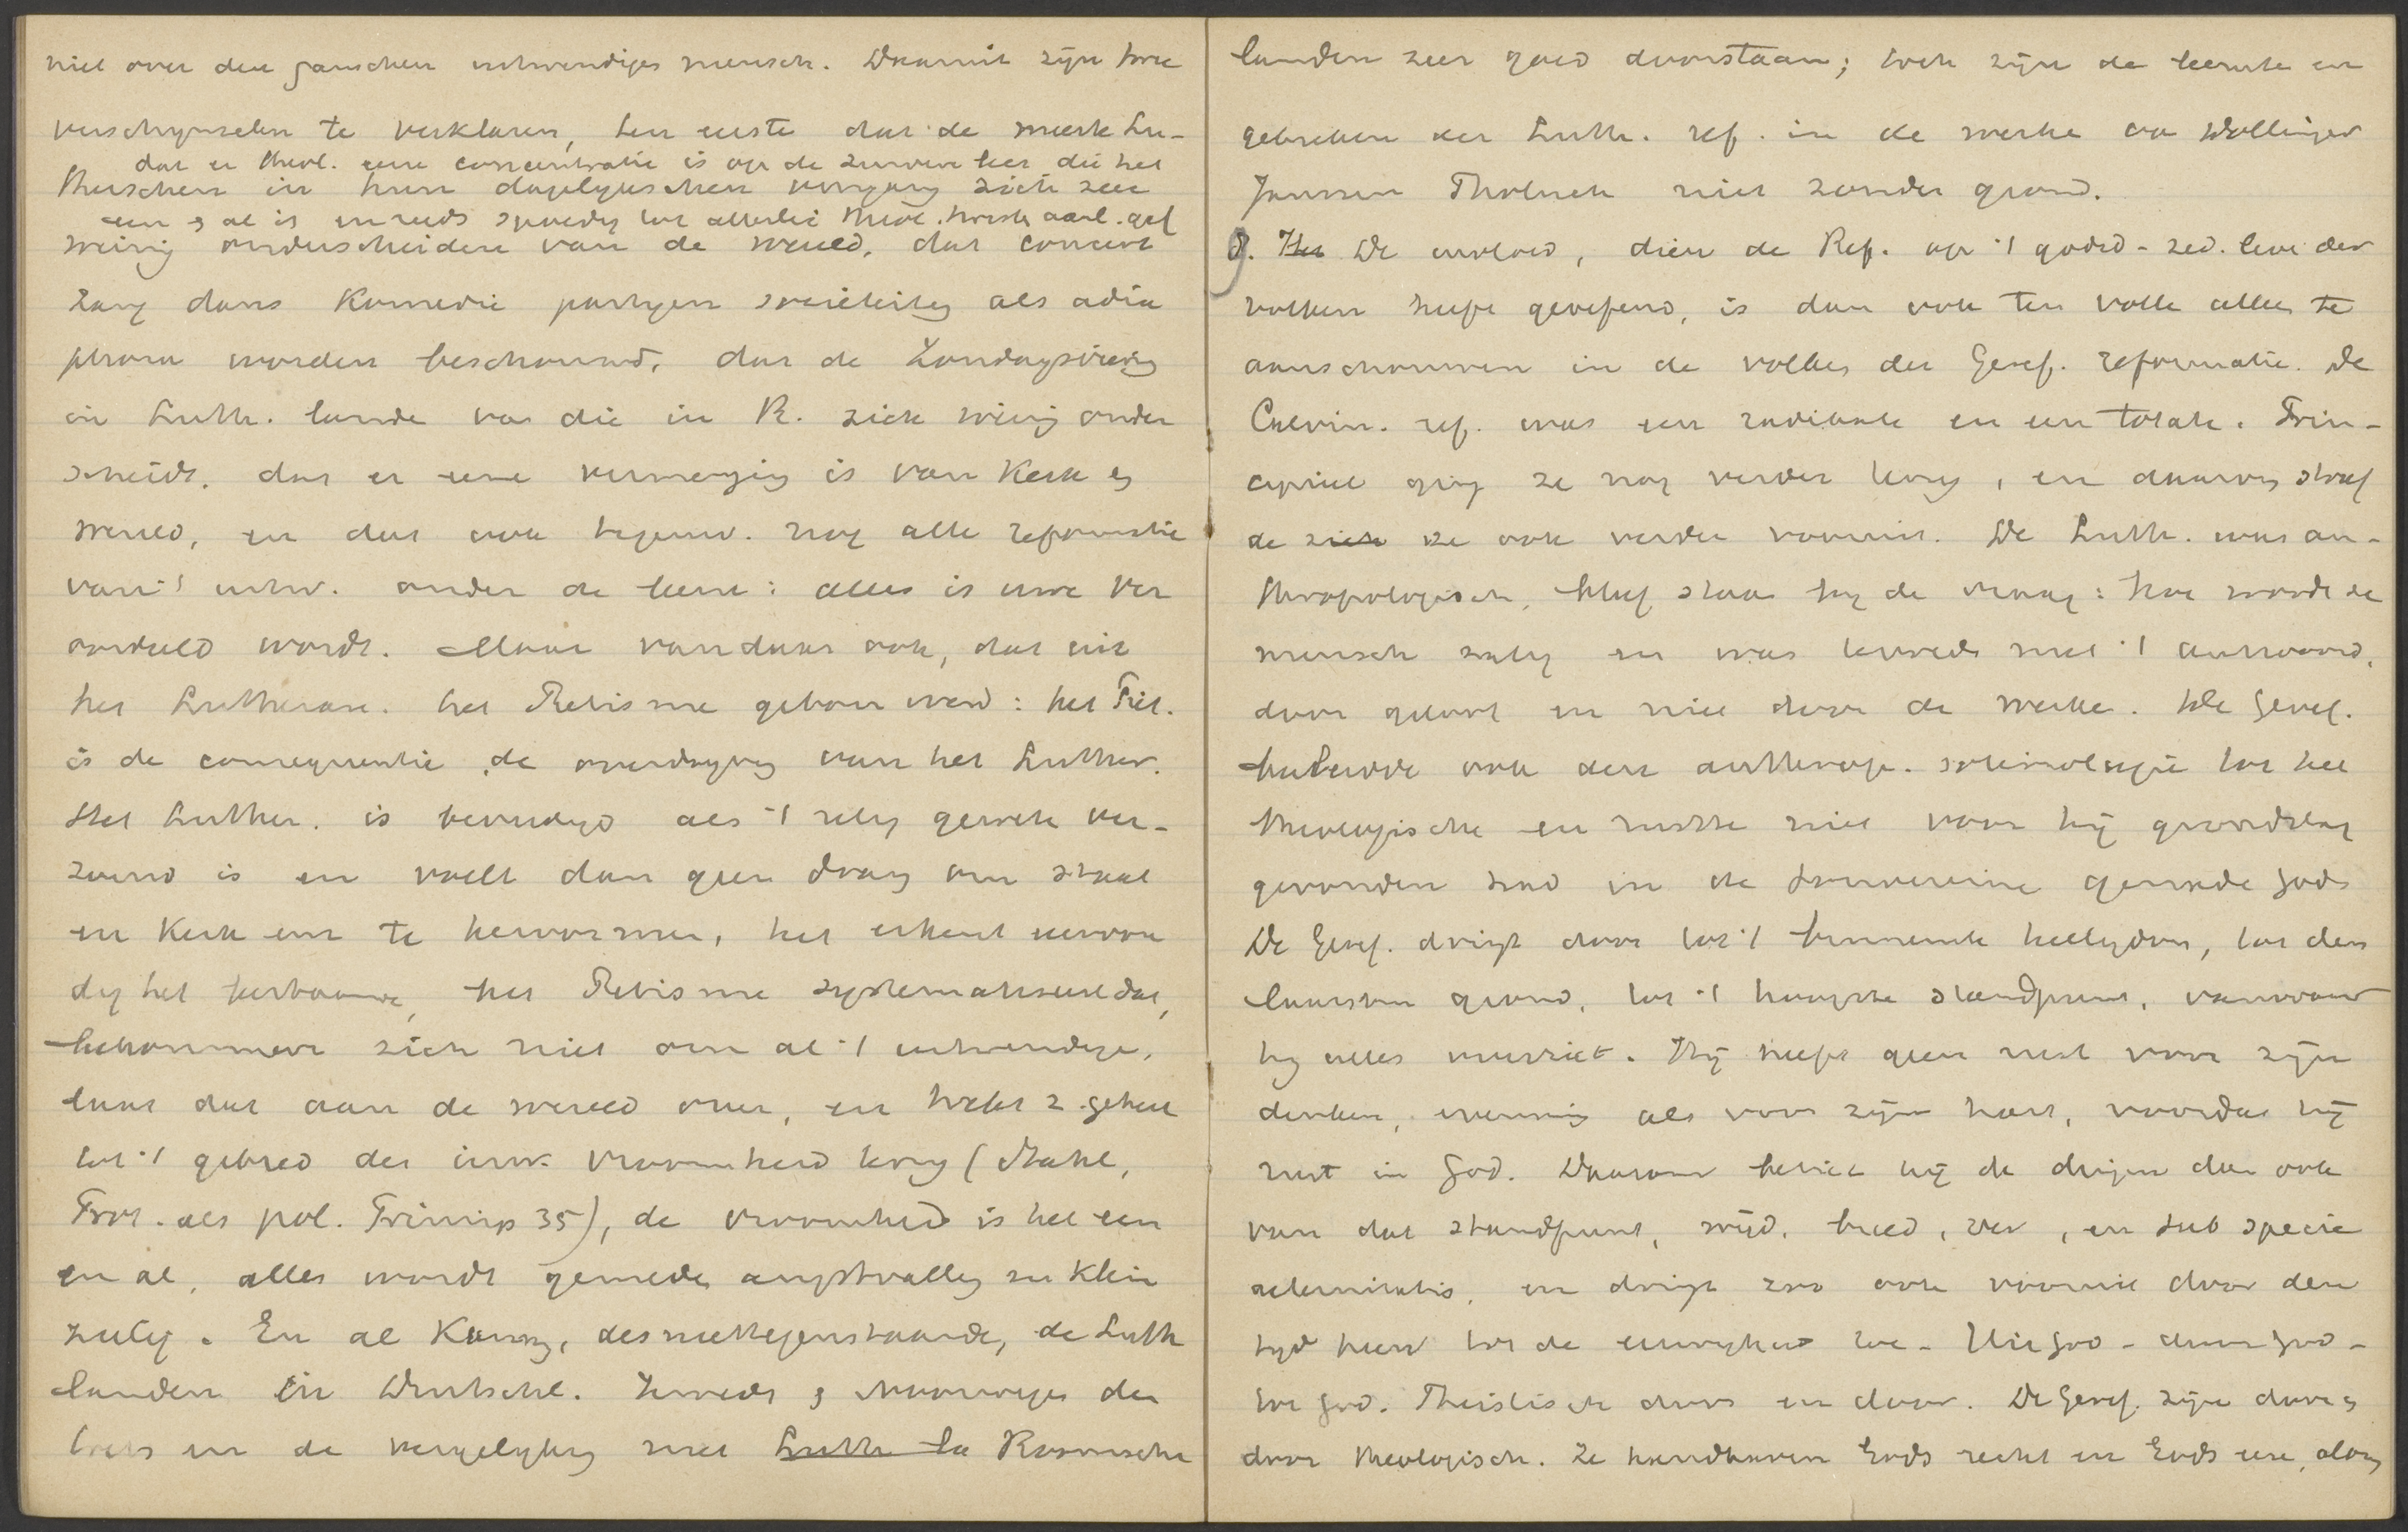 niet over den ganschen inwendigen mensch. Daaruit zijn twee
verschynselen te verklaren, ten eerste dat de meeste Lu-
dat er theol. eene concentratie is op de zuivere leer die het
therschen in hun dagelykschen omgang zich zeer
een & al is en reeds spoedig tot allerlei theol. twisten aanl. gaf
weinig onderscheiden van de wereld, dat concert
zang dans komedie partyen sociëteiten als adia
phora worden beschouwd, dat de Zondagsviering
in Luth. lande van die in R. zich weinig onder
scheidt. dat er eene vermenging is van Kerk en
wereld, en dat ook tegenw. nog alle reformatie
van 't uitw. onder de leus: alles is uwe ver
oordeeld wordt. Maar vandaar ook, dat uit
het Lutheran. het Piëtisme geboren werd: het Piet.
is de consequentie, de overdryving van het Luther.
Het Luther. is bevredigd als 't relig. gemoed ver-
zoend is en voelt dan geen drang om staat
en Kerk enz te hervormen, het erkent eenvou
dig het bestaande, het Piëtisme systematiseert dat,
bekommert zich niet om al 't uitwendige,
laat dat aan de wereld over, en trekt z. geheel
tot 't gebied der inw. vroomheid terug (Stahl,
Prot. als pol. Princip 35), de vroomheid is het een
en al, alles wordt gemeden angstvallig en klein
zielig. En al kunnen, desniettegenstaande, de Luth
landen in Duitschl. Zweden & Noorwegen den
toets en de vergelyking met Luth la Roomsche
landen zeer goed doorstaan; toch zijn de leemte en
gebreken der Luth. ref. in de werke van Döllinger
Janssen Tholuck niet zonder grond.
g. Het De invloed, dien de Ref. op 't godsd-zed. leven der
volken heeft geoefend, is dan ook ten volle alleen te
aanschouwen in de volken der Geref. reformatie. De
Calvin. ref. was een radikale en een totale. Prin-
cipieel ging ze nog verder terug, en daarom streef
de zich ze ook verder vooruit. De Luth. was an-
thropologisch, bleef staan by de vraag: hoe wordt de
mensch zalig en was tevreden met 't antwoord,
door geloof en niet door de werken. De Geref.
herleidde ook den anthrop. soteriologie tot het
theologische en rustte niet voor hij grondslag
gevonden had in de souvereine genade Gods
De Geref. dringt door tot 't binnenste heiligdom, tot den
laatsten grond, tot 't hoogste standpunt, vanwaar
hy alles overziet. Hij heeft geen rust voor zijn
denken, evenmin als voor zijn hart, voordat hij
rust in God. Daarom beziet hij de dingen dan ook
van dat standpunt, wijd, breed, ver, en sub specie
aeternitatis, en dringt zoo ook vooruit door den
tyd heen tot de eeuwigheid toe. Uit God - door God -
tot God. Theistisch door en door. De Geref. zijn door en
door theologisch. Ze handhaven Gods recht en Gods eere, alom